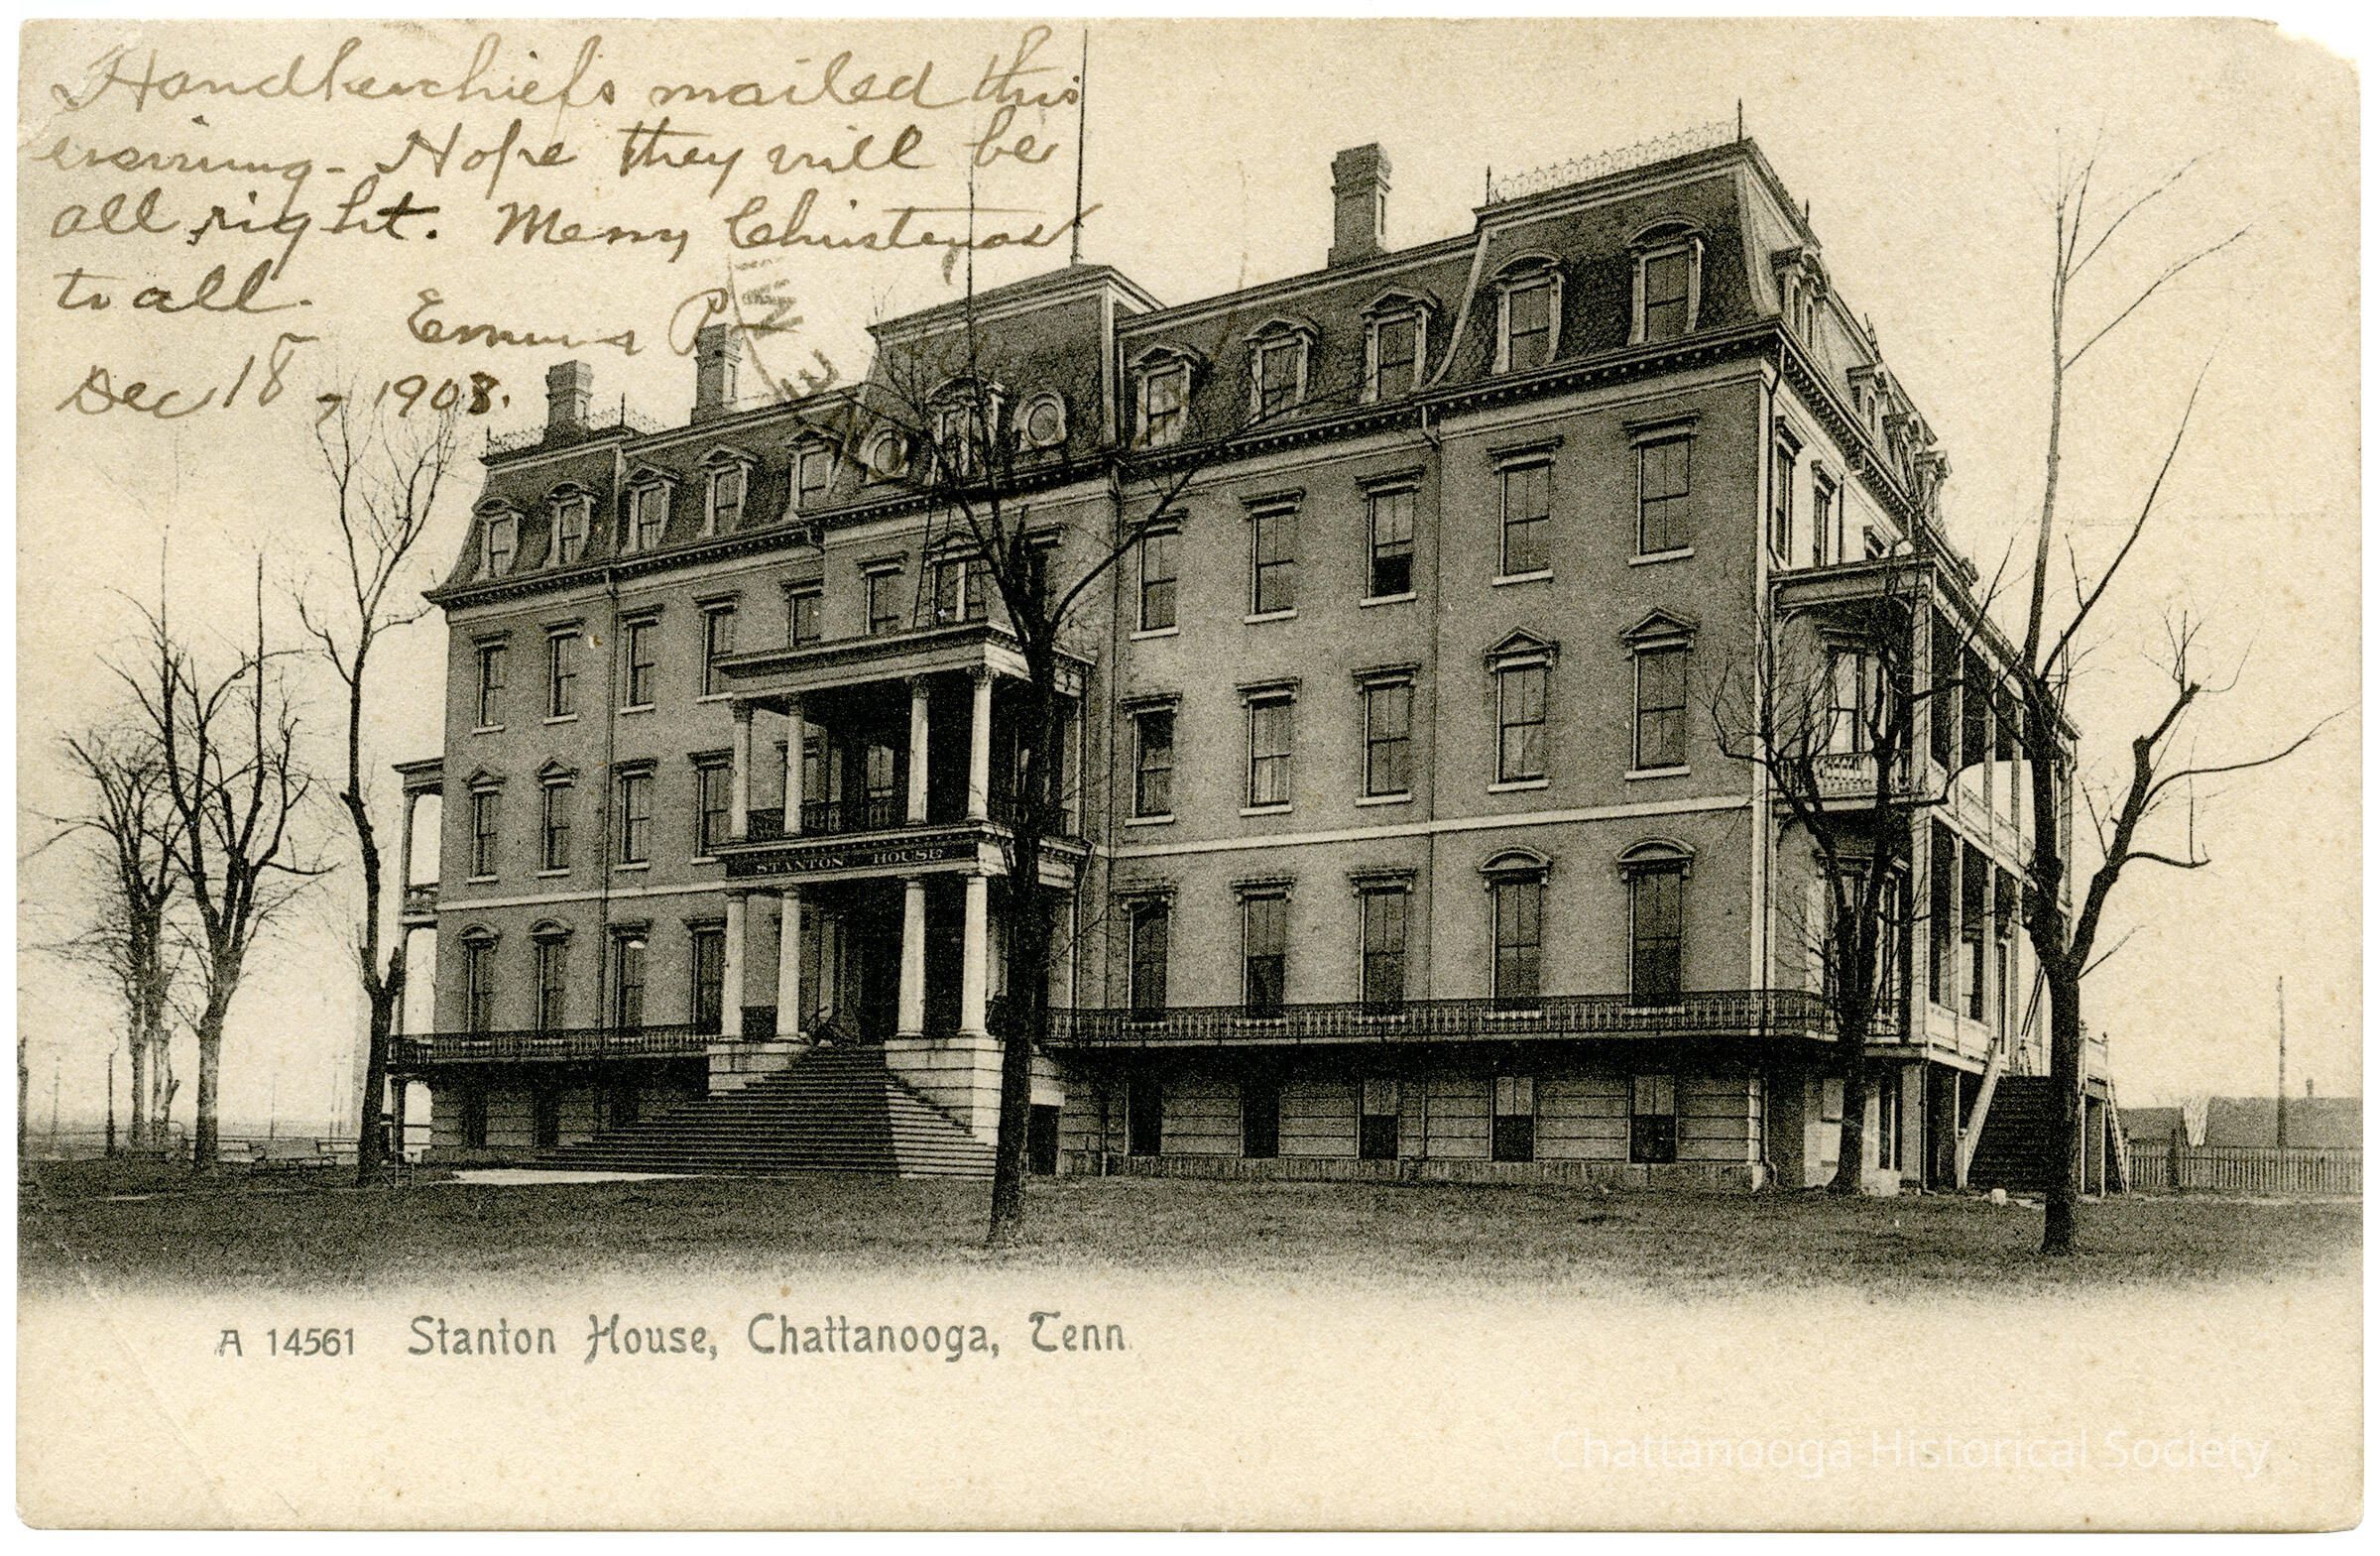 Handkerchiefs mailed this
evening - Hope they will be
all right. Merry Christmas
to all.
Emma P.
Dec 18 - 1908.
STANTON HOUSE
A 14561 Stanton House, Chattanooga, Tenn.
Chattanooga Historical Society